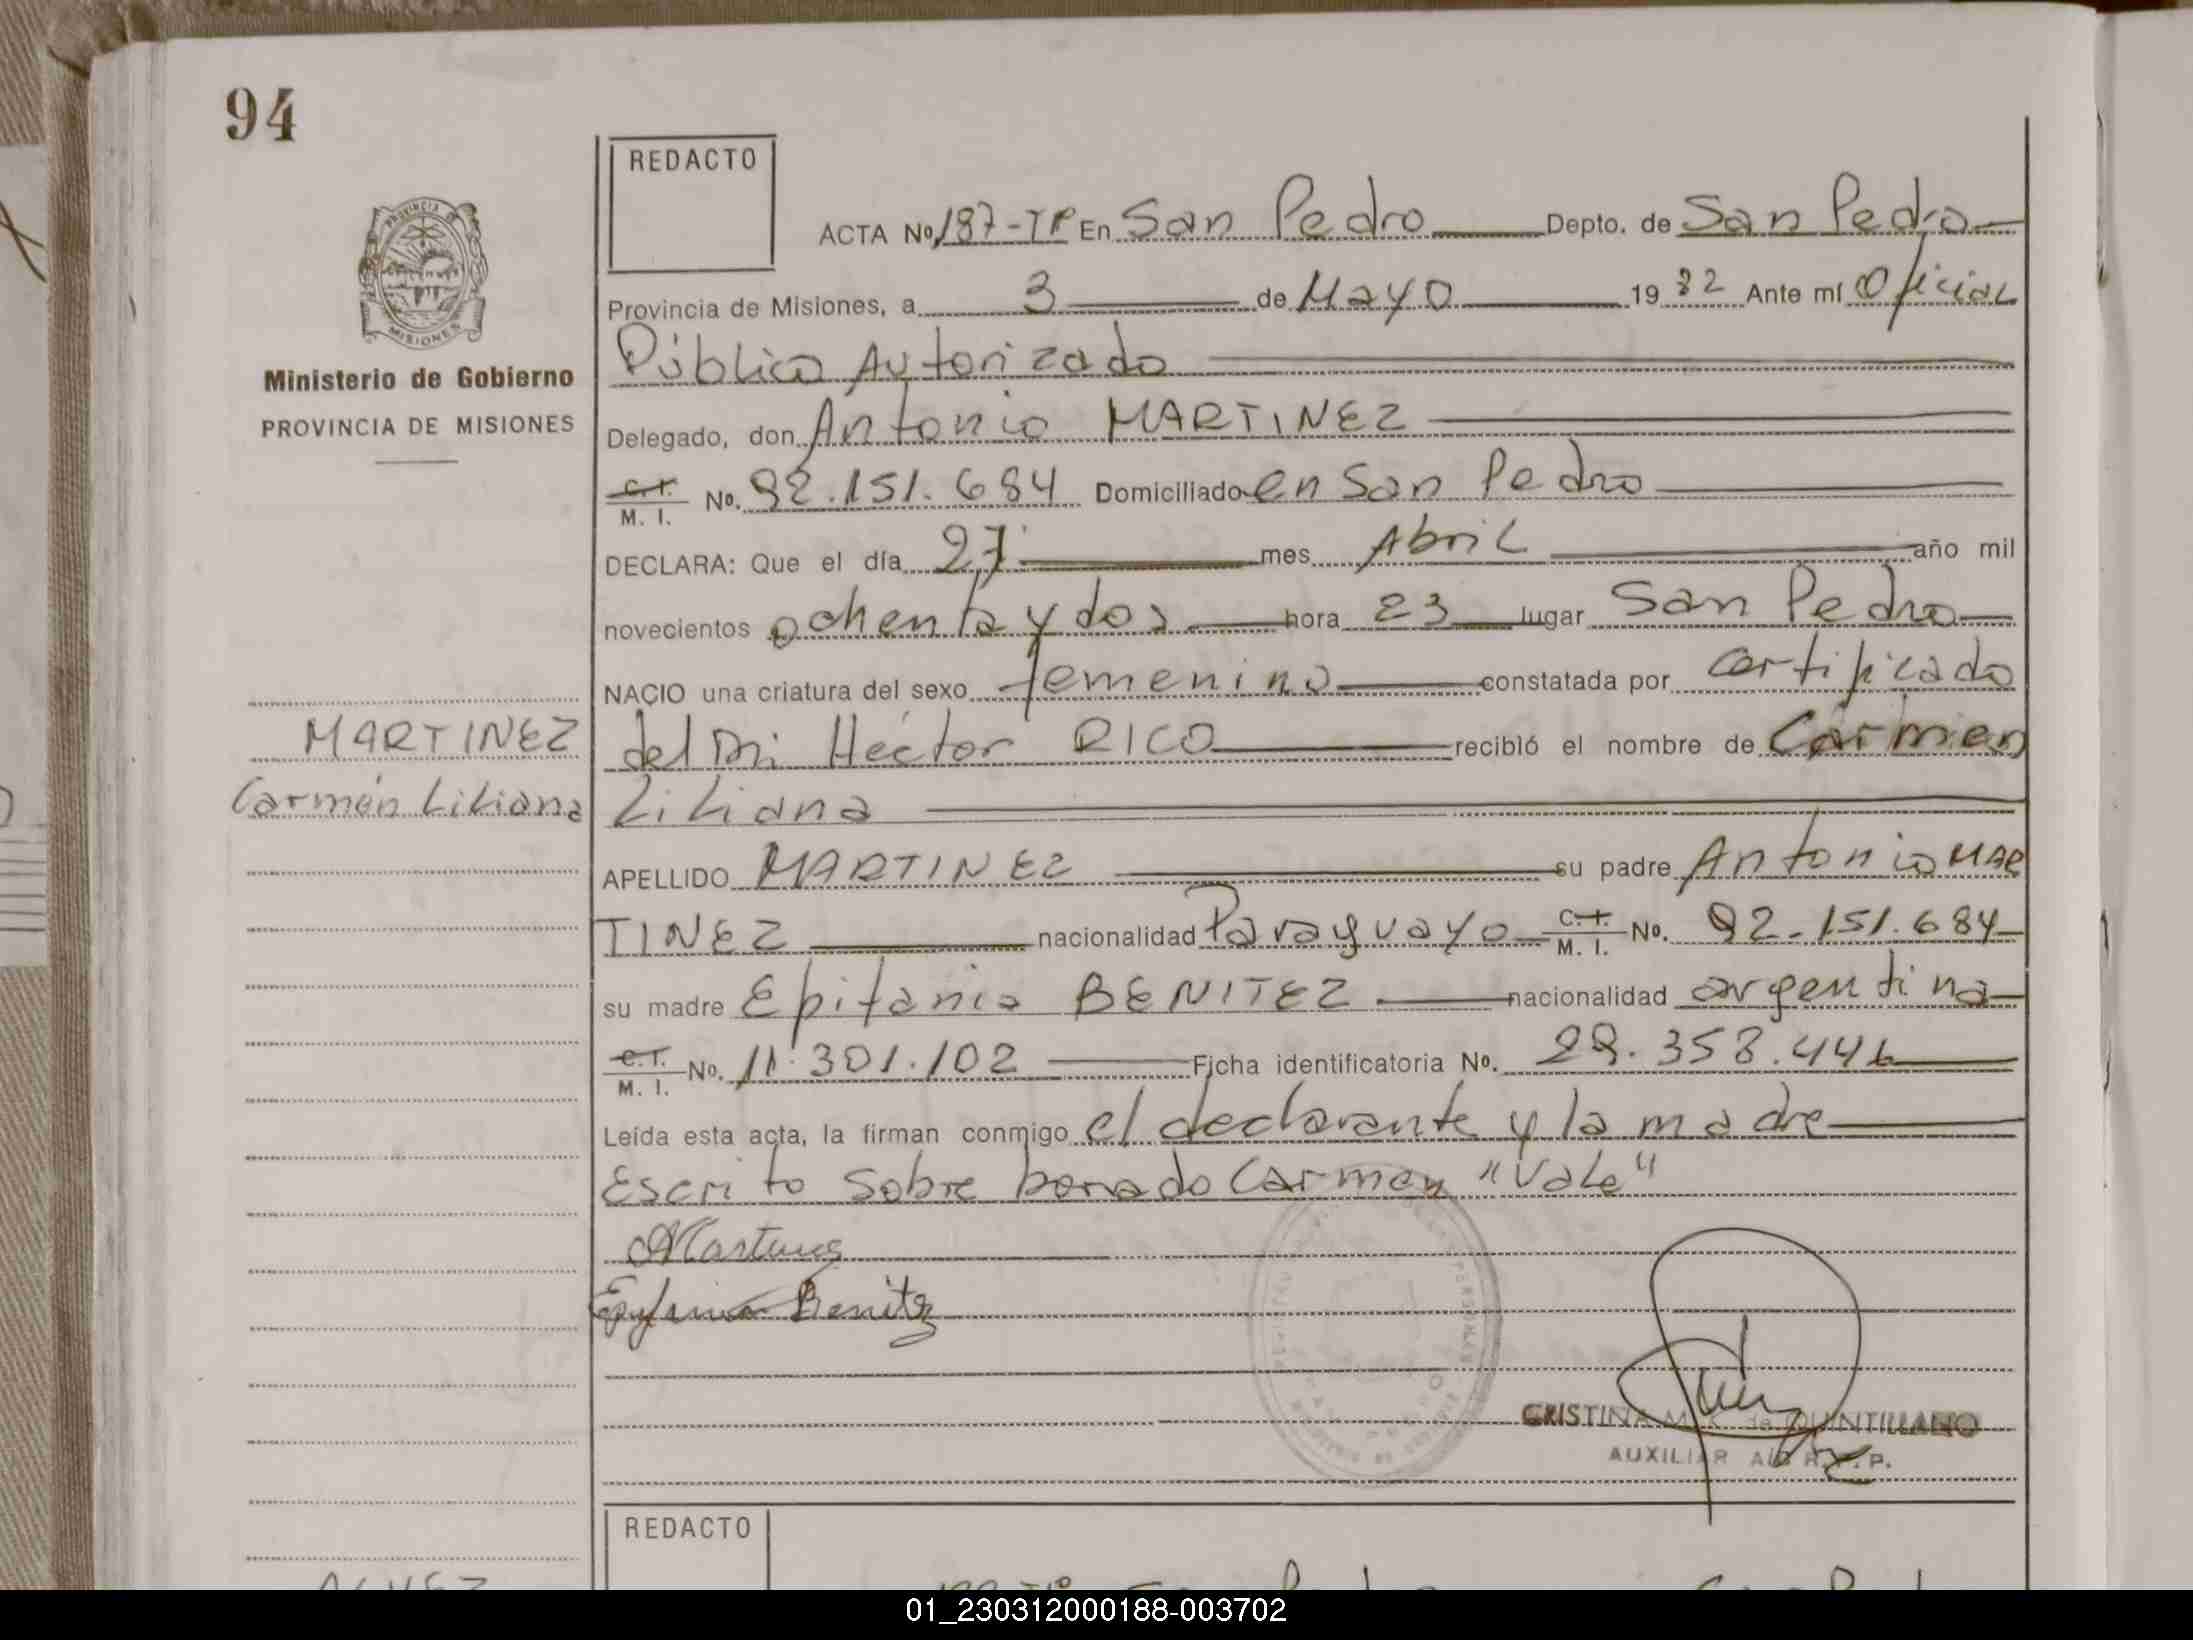 94
REDACTO
PROVINCIA DE
MISIONES
Ministerio de Gobierno
PROVINCIA DE MISIONES
ACTA Nº 187-Tº En San Pedro Depto. de San Pedro
Provincia de Misiones, a 3 de Mayo 1982 Ante mí Oficial
Público Autorizado
Delegado, don Antonio MARTINEZ
C. I. M. I. Nº. 92.151.684 Domiciliado en San Pedro
DECLARA: Que el día 27 mes Abril año mil
novecientos ochenta y dos hora 23 lugar San Pedro
NACIO una criatura del sexo femenino constatada por certificado
del Dr. Héctor RICO recibió el nombre de Carmen
Liliana
MARTINEZ
Carmen Liliana
APELLIDO MARTINEZ su padre Antonio MAR
TINEZ nacionalidad Paraguayo C. I. M. I. Nº. 92.151.684
su madre Epifania BENITEZ nacionalidad argentina
C. I. M. I. Nº. 11.301.102 Ficha identificatoria Nº. 29.358.446
Leída esta acta, la firman conmigo el declarante y la madre
Escrito sobre borrado Carmen "Vale"
AMartinez
Epifania Benitez
CRISTINA M. K. de QUINTILLANO
AUXILIAR
REDACTO
01_230312000188-003702